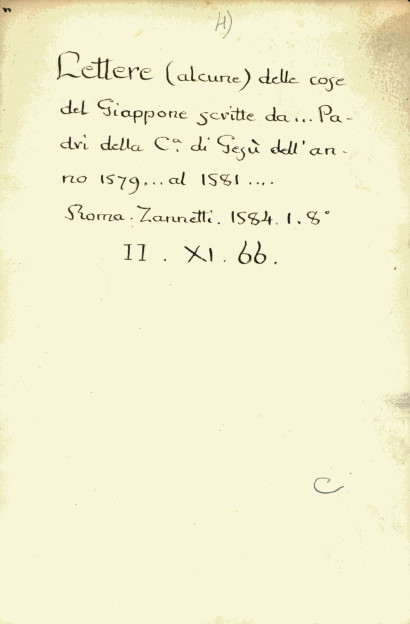 H)
Lettere (alcune) delle cose
del Giappone scritte da... Pa-
dri della C.ª di Gesù dell'an-
no 1579... al 1581 ....
Roma. Zannetti. 1584. 1. 8°
II. XI. 66.
C